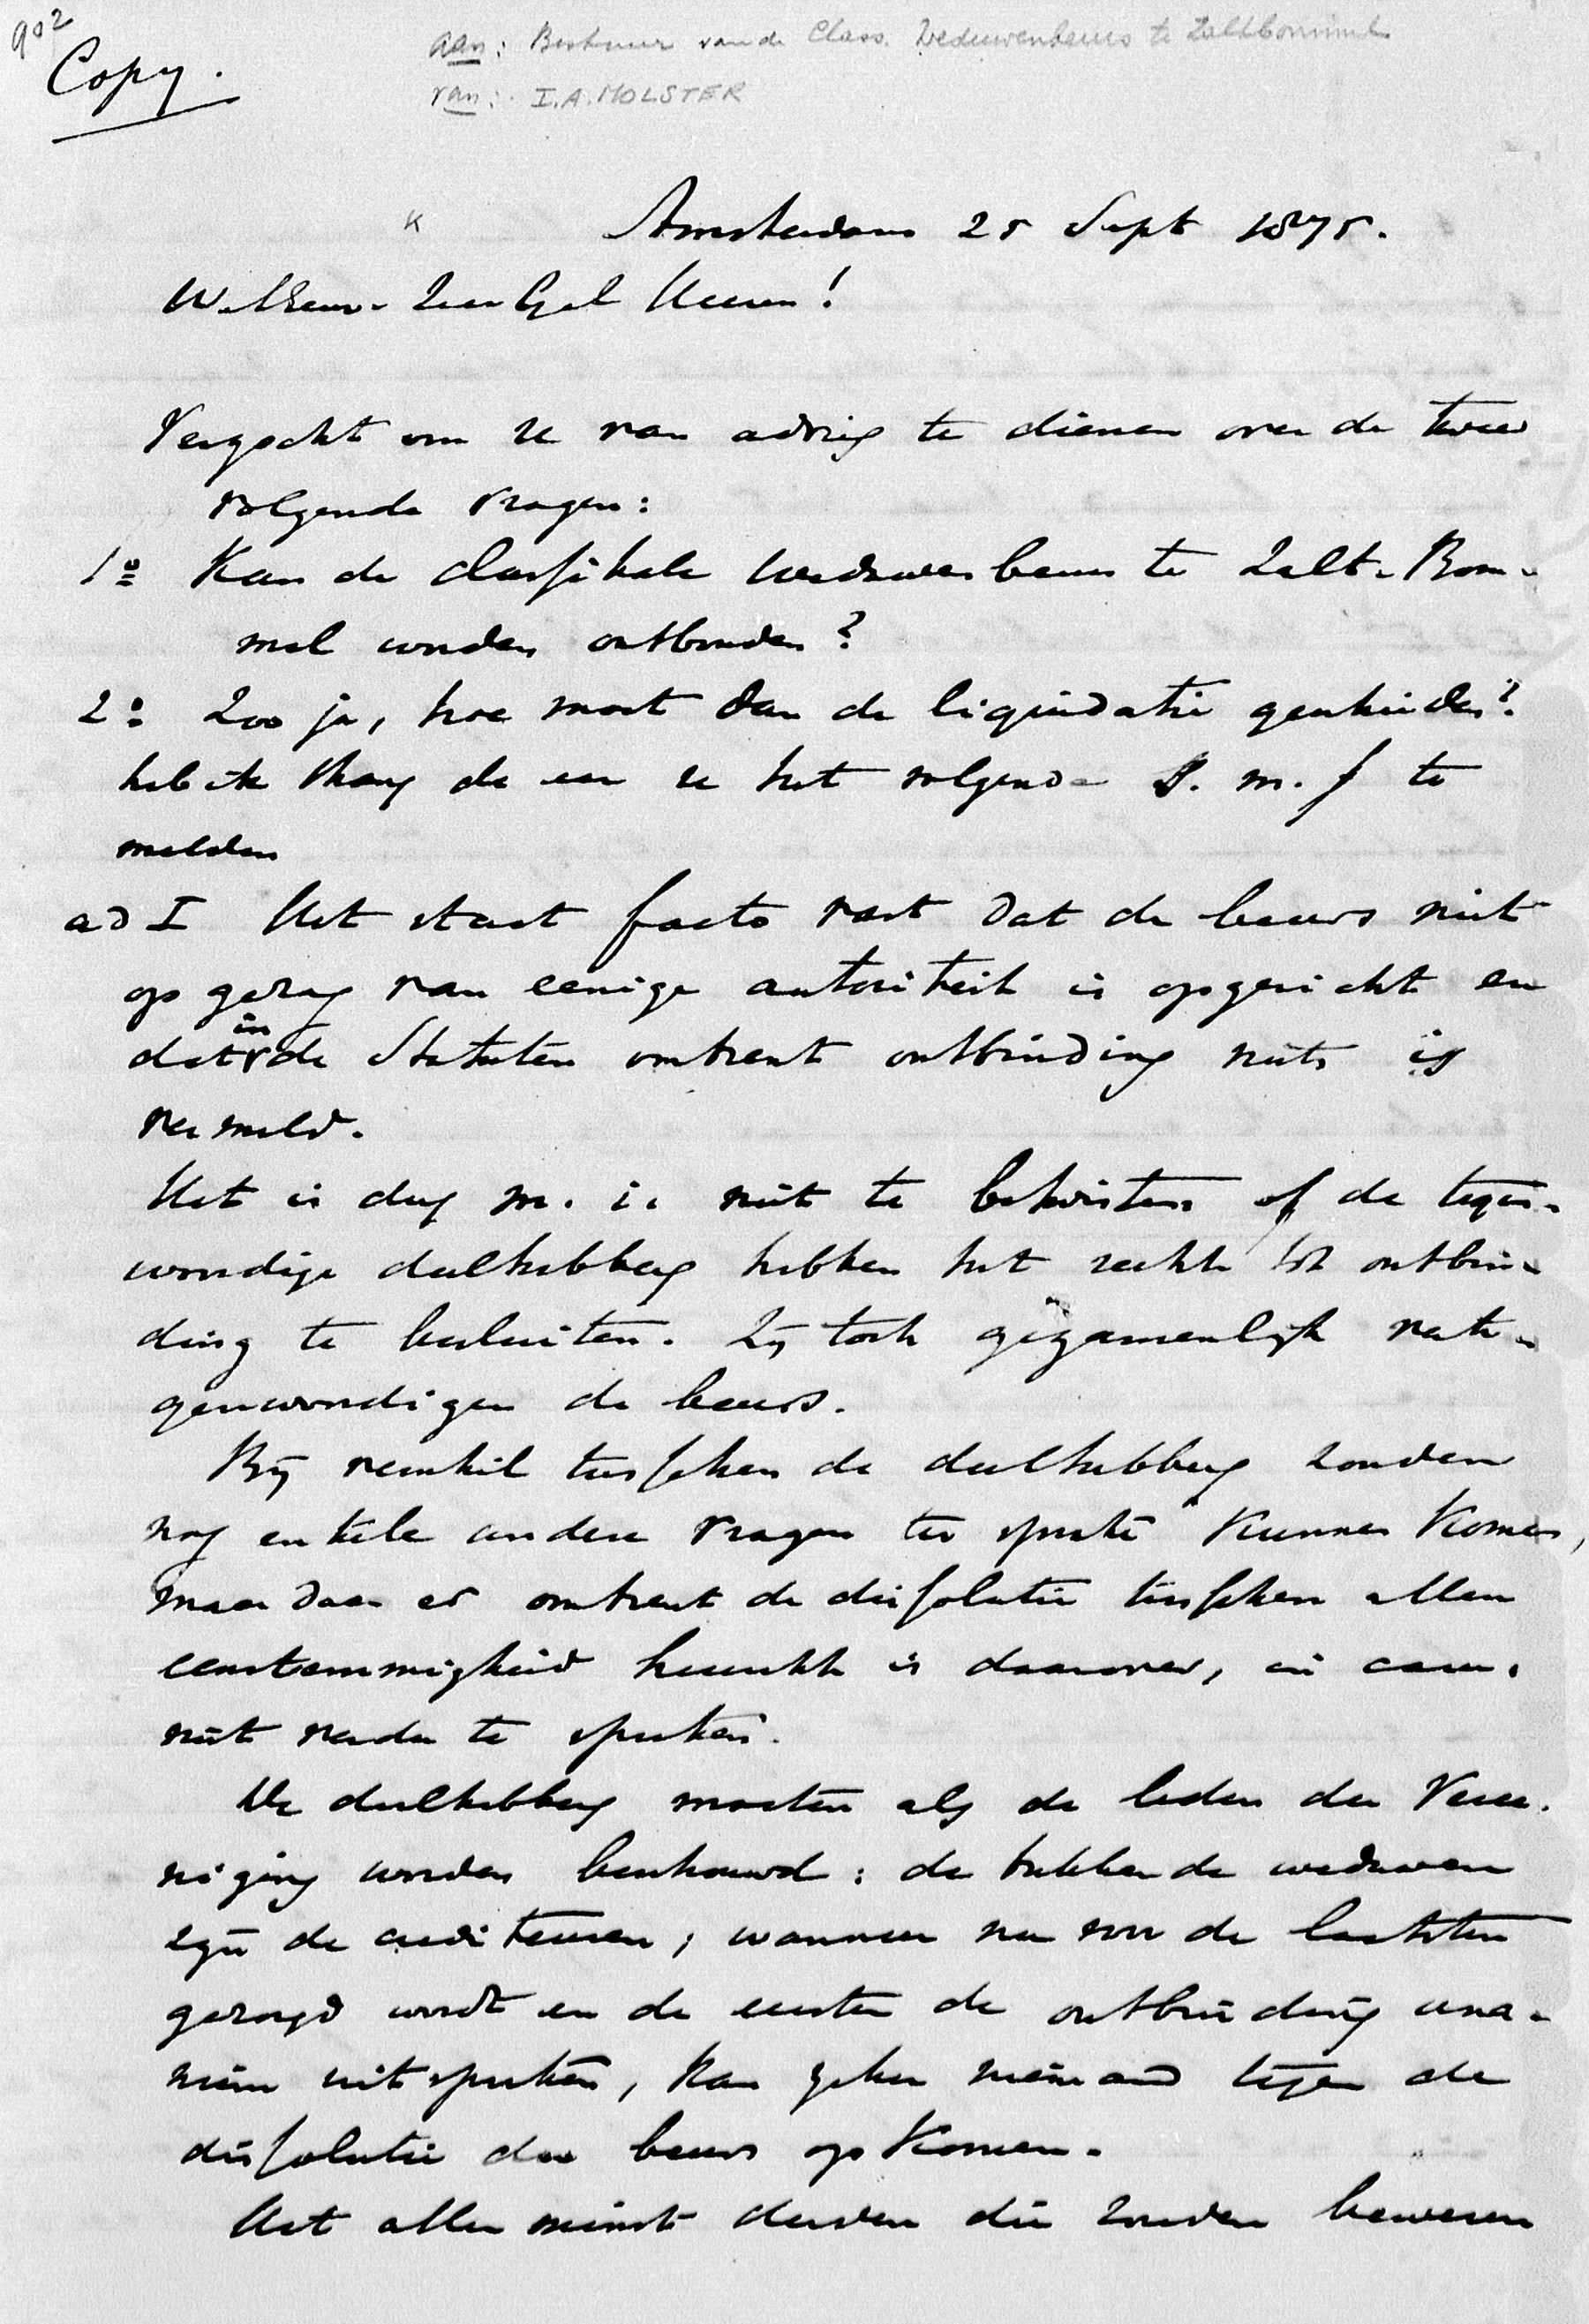 902
Copy.
aan: Bestuur van de Class. Weduwenbeurs te Zaltbommel
van: I.A. MOLSTER
K
Amsterdam 25 Sept 1875.
WelEerw. Zeer Gel Heeren!
Verzocht om U van advies te dienen over de twee
volgende vragen:
1o Kan de classikale weduwenbeurs te Zalt-Bom-
mel worden ontbonden?
2o Zoo ja, hoe moet dan de liquidatie geschieden?
heb ik thans de eer U het volgende te
melden
ad I Het staat facto vast dat de beurs niet
op gezag van eenige autoriteit is opgericht en
dat in de Statuten omtrent ontbinding niets is
vermeld.
Het is dus m. i. niet te betwisten of de tegen-
woordige deelhebbers hebben het recht tot ontbin-
ding te besluiten. Zij toch gezamenlijk verte-
genwoordigen de beurs.
Bij verschil tusschen de deelhebbers zouden
nog enkele andere vragen ter sprake kunnen komen,
maar daar er omtrent de dissolutie tusschen allen
eenstemmigheid heerscht is daarover, in casu,
niet verder te spreken.
De deelhebbers moeten als de leden der Veree-
niging worden beschouwd: de trekkende weduwen
zijn de crediteuren; wanneer nu voor de laatsten
gezorgd wordt en de eersten de ontbinding una-
niem uitspreken, kan zeker niemand tegen de
dissolutie der beurs opkomen.
Het allerminst derden die zouden beweren